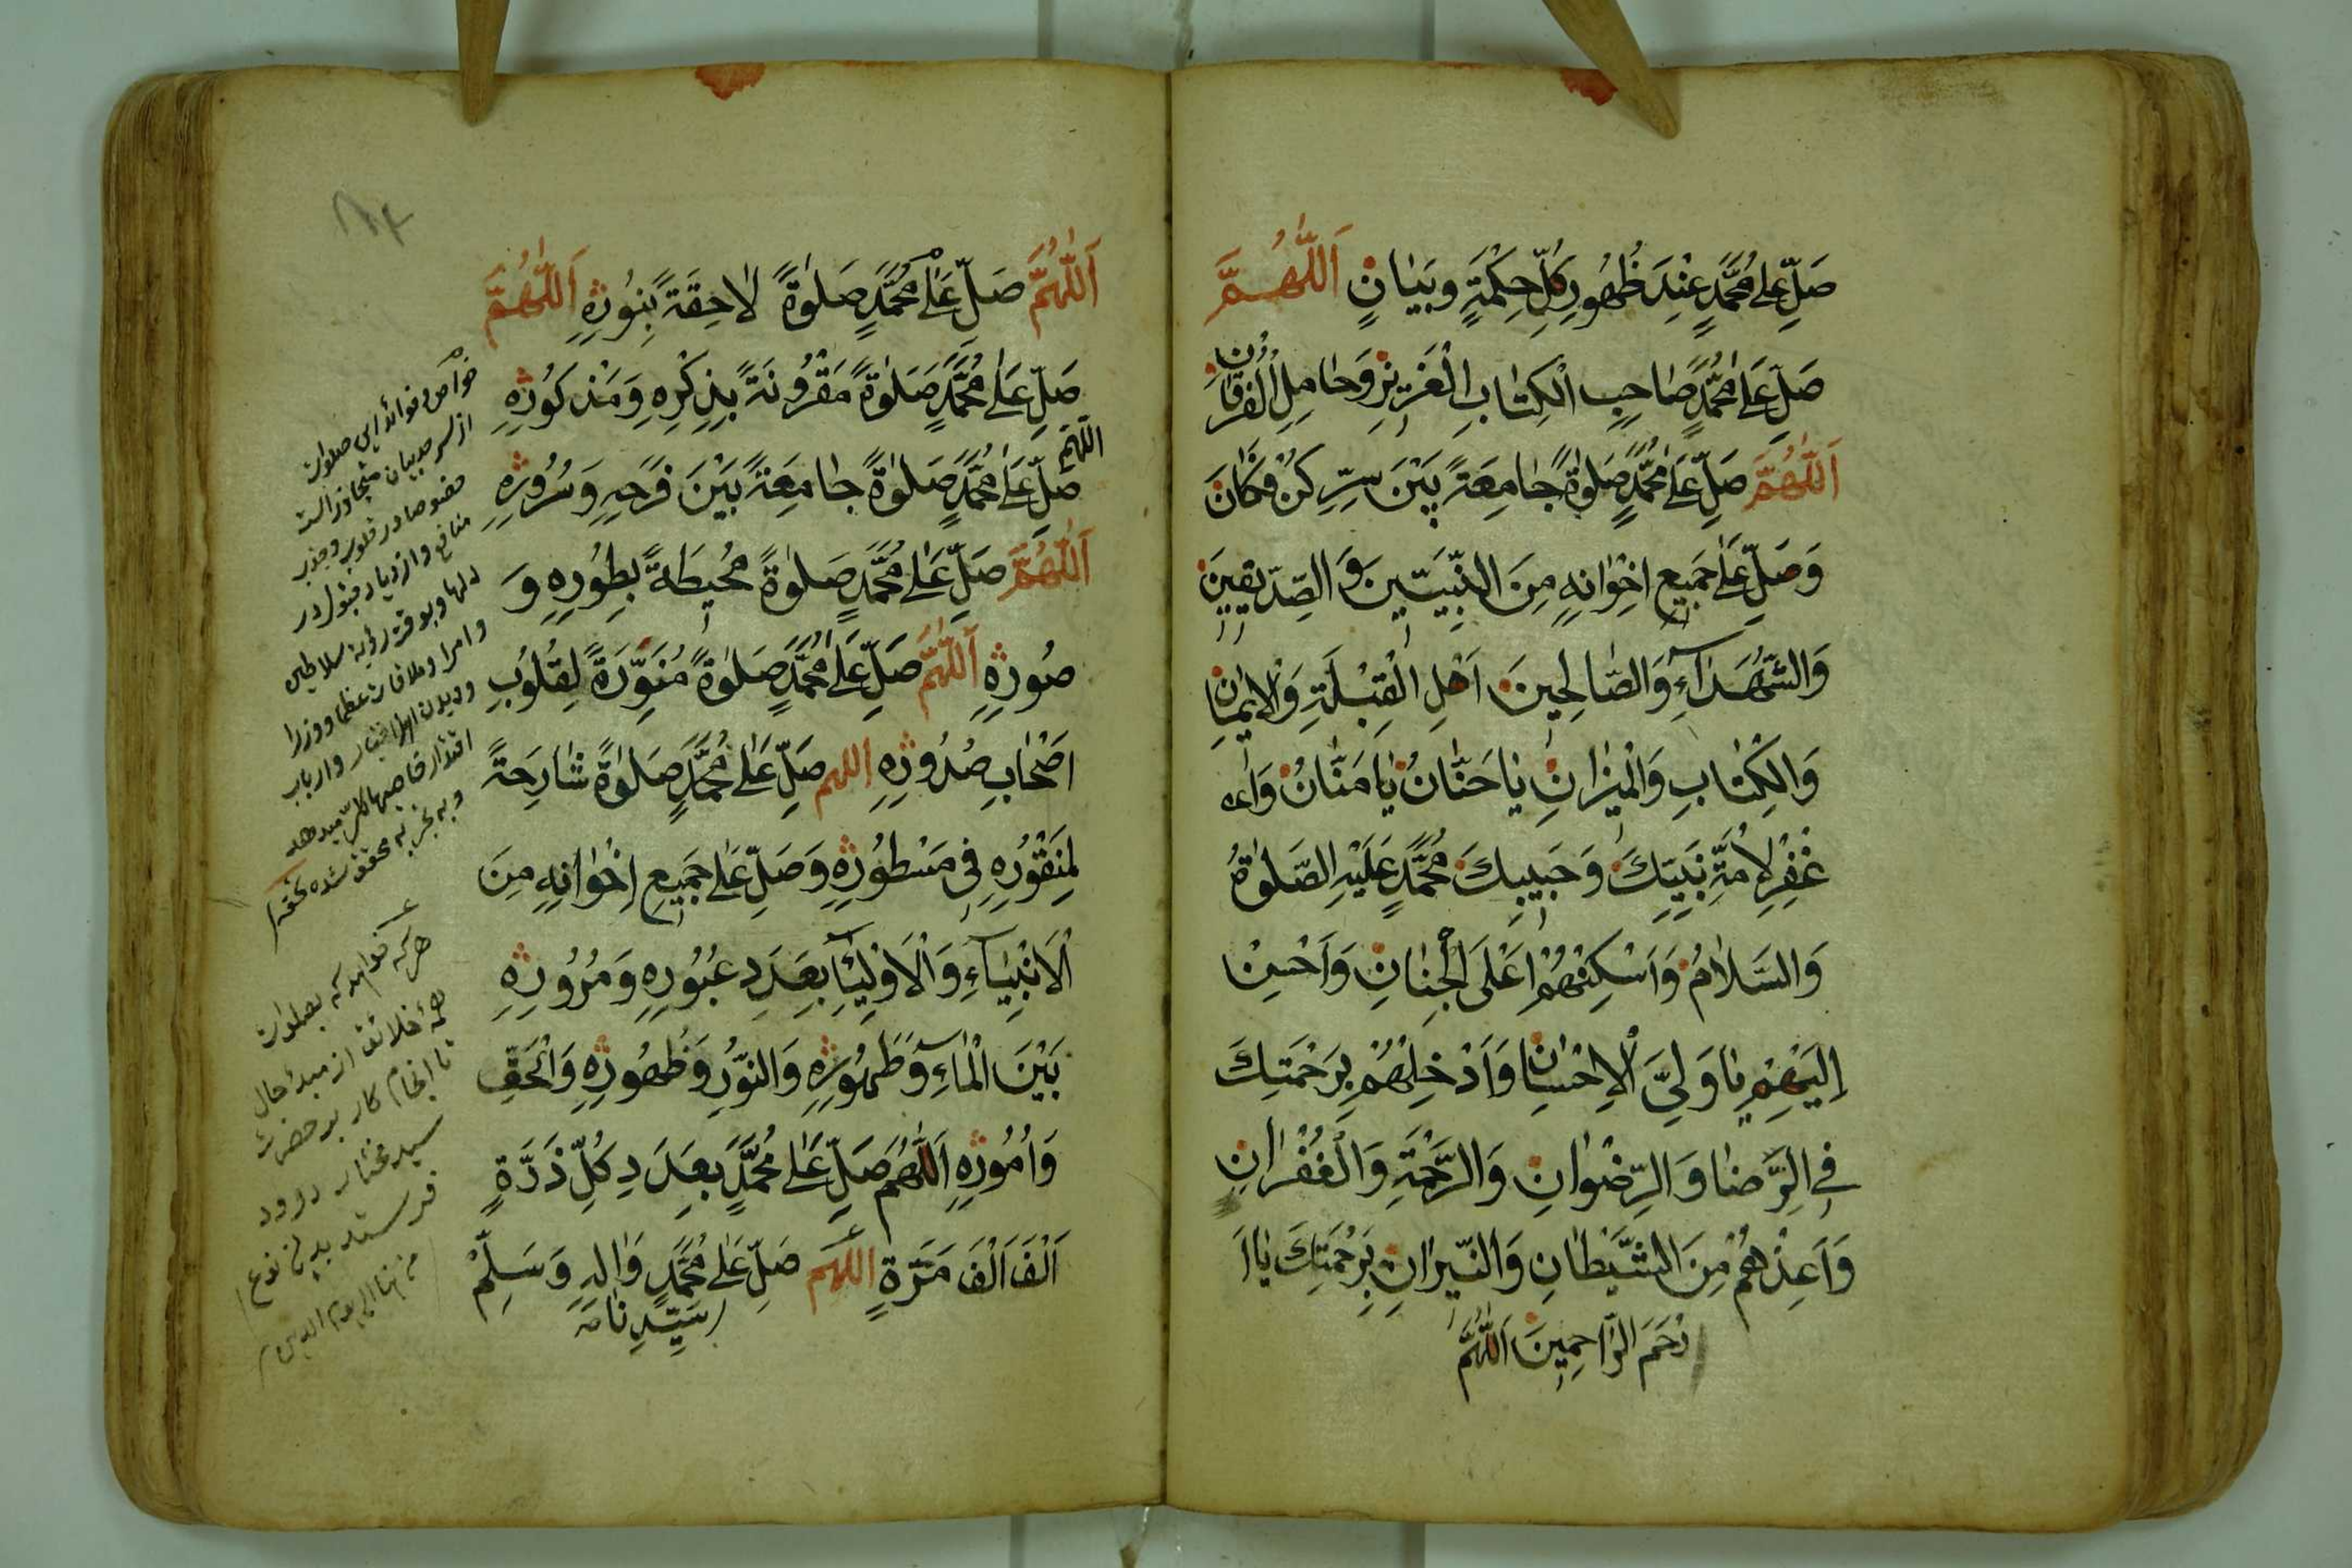 صَلِّ عَلىٰ مُحَمَّدٍ عِنْدَ ظُهُورِ كُلِّ حِكْمَةٍ وَبَيَانٍ اَللّٰهُمَّ
صَلِّ عَلىٰ مُحَمَّدٍ صَاحِبِ الْكِتَابِ الْعَزِيزِ وَحَامِلِ الْفُرْقَانِ
اَللّٰهُمَّ صَلِّ عَلىٰ مُحَمَّدٍ صَلوٰةً جَامِعَةً بَيْنَ سِرِّ كُنْ فَكَانَ
وَصَلِّ عَلىٰ جَمِيعِ اِخْوَانِهِ مِنَ النَّبِيّٖينَ وَالصِّدِّيقِينَ
وَالشُّهَدَآءِ وَالصَّالِحِينَ اَهْلِ الْقِبْلَةِ وَالْاِيمَانِ
وَالْكِتَابِ وَالْمِيْزَانِ يَا حَنَّانُ يَا مَنَّانُ وَا
غْفِرْ لِاُمَّةِ نَبِيِّكَ وَحَبِيبِكَ مُحَمَّدٍ عَلَيْهِ الصَّلوٰةُ
وَالسَّلَامُ وَاَسْكِنْهُمْ اَعْلَى الْجِنَانِ وَاَحْسِنْ
اِلَيْهِمْ يَا وَلِيَّ الْاِحْسَانِ وَاَدْخِلْهُمْ بِرَحْمَتِكَ
فِي الرِّضَا وَالرِّضْوَانِ وَالرَّحْمَةِ وَالْغُفْرَانِ
وَاَعِذْهُمْ مِنَ الشَّيْطَانِ وَالنِّيرَانِ بِرَحْمَتِكَ يَا اَ
رْحَمَ الرَّاحِمِينَ اَللّٰهُمَّ
اَللّٰهُمَّ صَلِّ عَلىٰ مُحَمَّدٍ صَلوٰةً لَاحِقَةً بِنُورِهِ اَللّٰهُمَّ
صَلِّ عَلىٰ مُحَمَّدٍ صَلوٰةً مَقْرُونَةً بِذِكْرِهِ وَمَذْكُورِهِ
اللّهم
صَلِّ عَلىٰ مُحَمَّدٍ صَلوٰةً جَامِعَةً بَيْنَ فَرَحِهِ وَسُرُورِهِ
اَللّٰهُمَّ صَلِّ عَلىٰ مُحَمَّدٍ صَلوٰةً مُحِيطَةً بِطُورِهِ وَ
صُورِهِ اَللّٰهُمَّ صَلِّ عَلىٰ مُحَمَّدٍ صَلوٰةً مُنَوِّرَةً لِقُلُوبِ
اَصْحَابِ صُدُورِهِ اللهم صَلِّ عَلىٰ مُحَمَّدٍ صَلوٰةً شَارِحَةً
لِمَنْقُورِهِ فِي مَسْطُورِهِ وَصَلِّ عَلىٰ جَمِيعِ اِخْوَانِهِ مِنَ
الْاَنْبِيَآءِ وَالْاَوْلِيَآءِ بِعَدَدِ عُبُورِهِ وَمُرُورِهِ
بَيْنَ الْمَآءِ وَطَهُورِهِ وَالنُّورِ وَظُهُورِهِ وَالْحَقِّ
وَاُمُورِهِ اَللّٰهُمَّ صَلِّ عَلىٰ مُحَمَّدٍ بِعَدَدِ كُلِّ ذَرَّةٍ
اَلْفَ اَلْفَ مَرَّةٍ اللّهم صَلِّ عَلىٰ مُحَمَّدٍ وَاٰلِهِ وَسَلِّمْ
سَيِّدِنَا
خواص و فوائد این صلوات
از سر حد بیان متجاوز است
خصوصا در قلوب و جذب
منافع و ازدیاد قبول در
دلها و بوقت رؤیة سلاطین
و امرا و ملاقات عظما و وزرا
و دیدن اهل اختیار و ارباب
هر که خواهد که بصلوات
همۀ خلائق از مبدأ حال
تا انجام کار بر حضرت
سید مختار درود
فرستد بدین نوع
من هنا الی یوم الدین